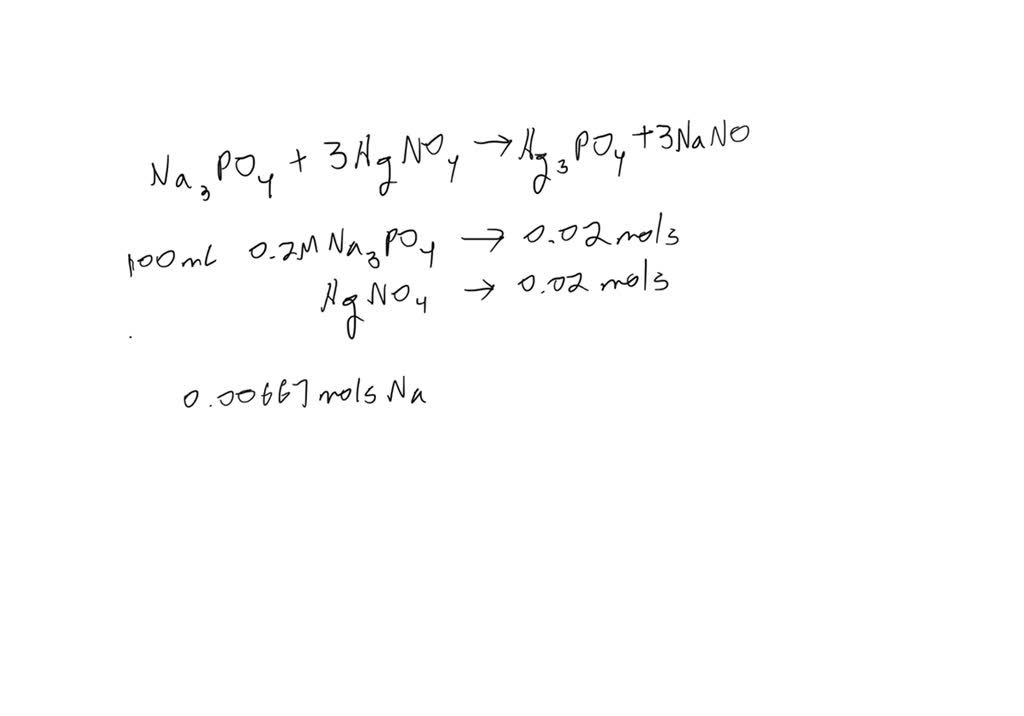 Na₃PO₄ + 3HgNO₄ → Hg₃PO₄ + 3NaNO
100mL 0.2M Na₃PO₄ → 0.02 mols
HgNO₄ → 0.02 mols
0.00667 mols Na